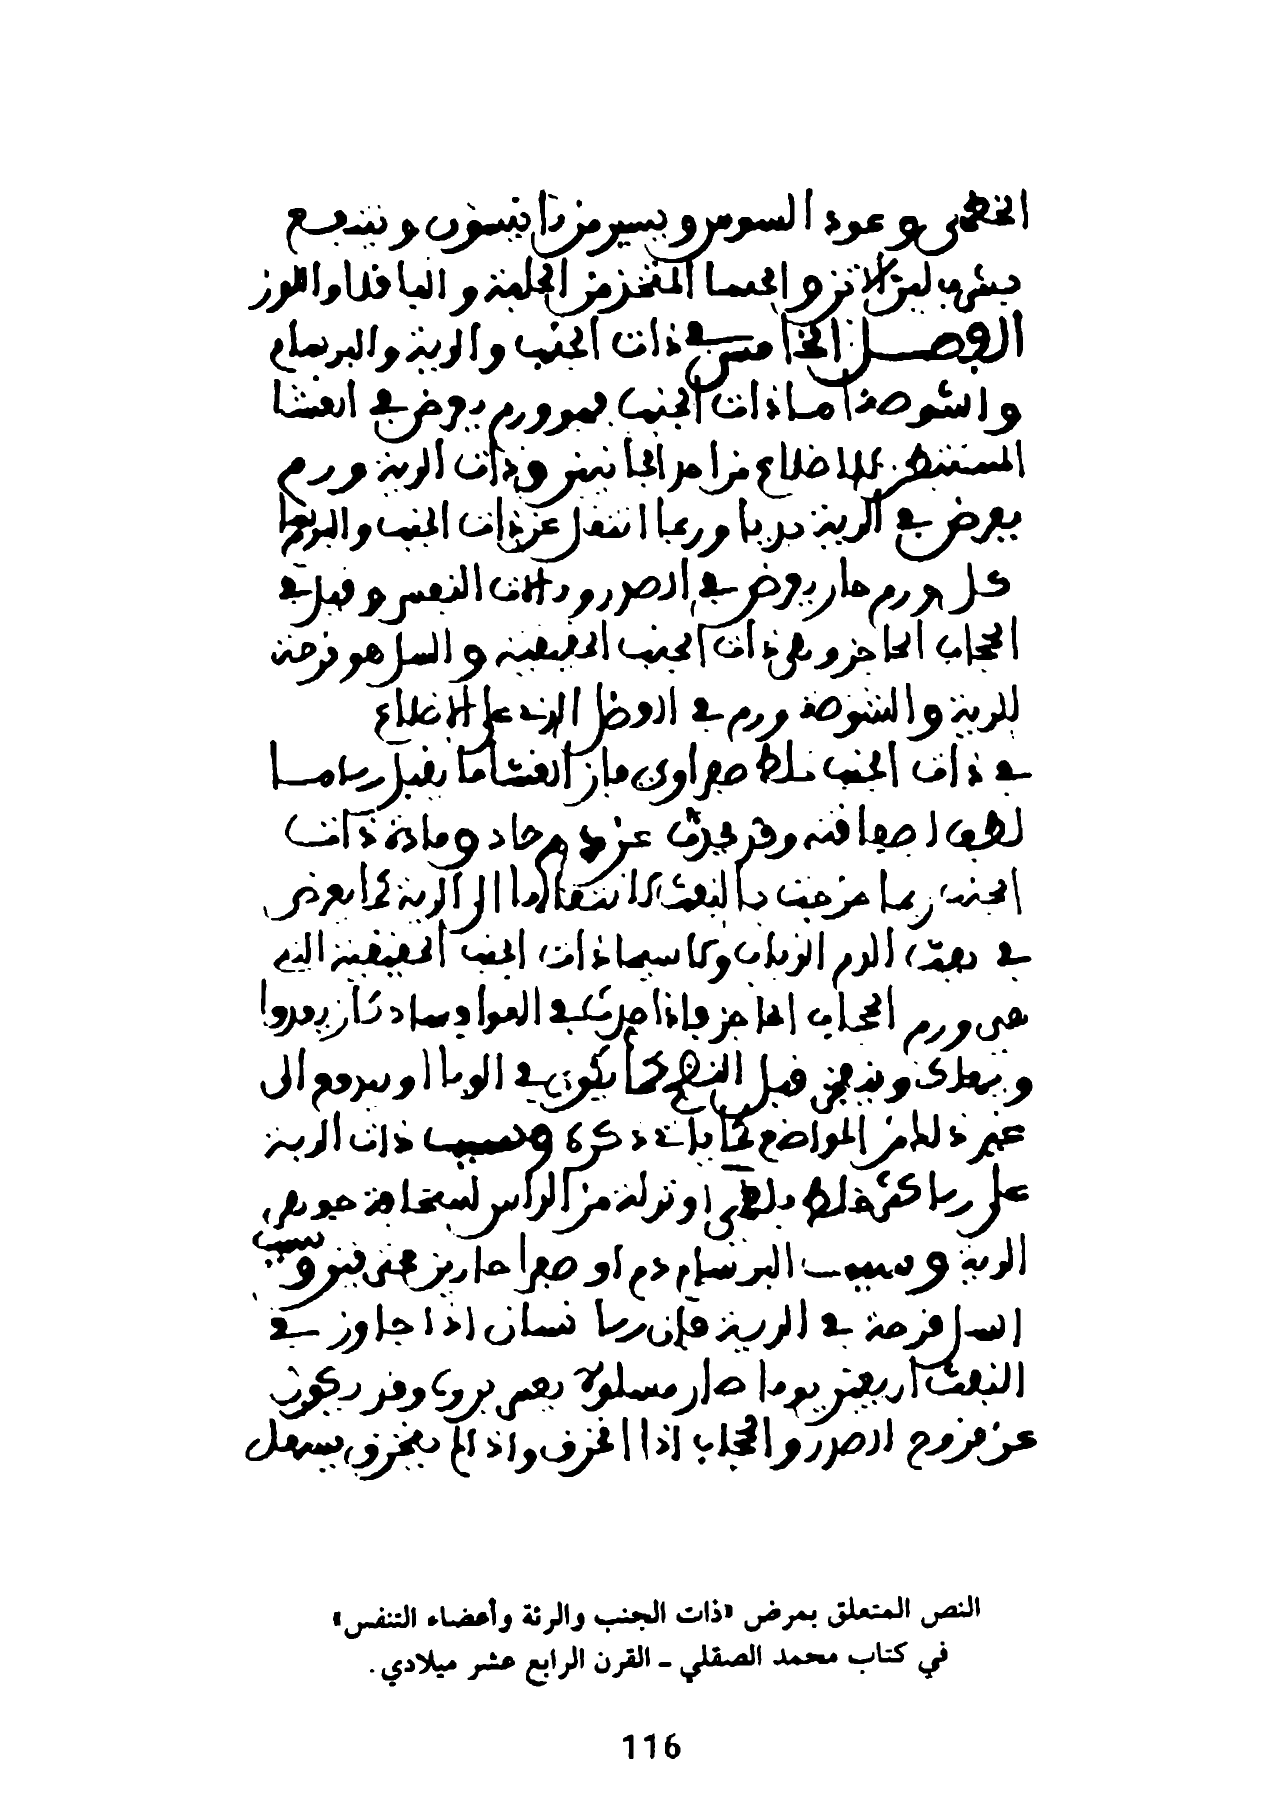 الخطمى وعود السوس ويسير من انيسون وينتفع
بشرب لبن الاتن والحسا المتخذ من الحلبة والباقلا واللوز
الفصل الخامس في ذات الجنب والرية والبرسام
والشوصة اما ذات الجنب فهو ورم يعرض في الغشا
المستبطن للاضلاع من احد الجانبين وذات الرية ورم
يعرض في الرية وربما انتقل عن ذات الجنب والبرسام
كل ورم حار يعرض في الصدر والات النفس وقيل في
الحجاب الحاجز وهى ذات الجنب الحقيقية والسل هو قرحة
الرية والشوصة ورم في العضل الذي على الاضلاع
في ذات الجنب خلط صفراوى فان الغشا ما يقبل ما
لطف لصفاقته وقد يحدث عن دم حاد ومادة ذات
الجنب ربما خرجت بالنفث لانتقالها الى الرية كما يعرض
في نفث الدم ولا سيما ذات الجنب الحقيقية الذي
هى ورم الحجاب الحاجز فاذا حدث في الهوا
قبل النضج كما يكون في الوبا او يندفع الى
غير ذلك من المواضع كما ياتي ذكره وسبب ذات الرية
على خلط بلغمى او نزلة من الراس لسخافة جوهر
الرية وسبب البرسام دم او صفرا حارين محتقنين وسبب
السل قرحة في الرية فان كل انسان اذا جاوز في
النفث اربعين يوما صار مسلولا وقد يكون
عن قروح الصدر والحجاب اذا انخرق واذا لم ينخرق يسهل
النص المتعلق بمرض «ذات الجنب والرئة وأعضاء التنفس»
في كتاب محمد الصقلي - القرن الرابع عشر ميلادي.
116